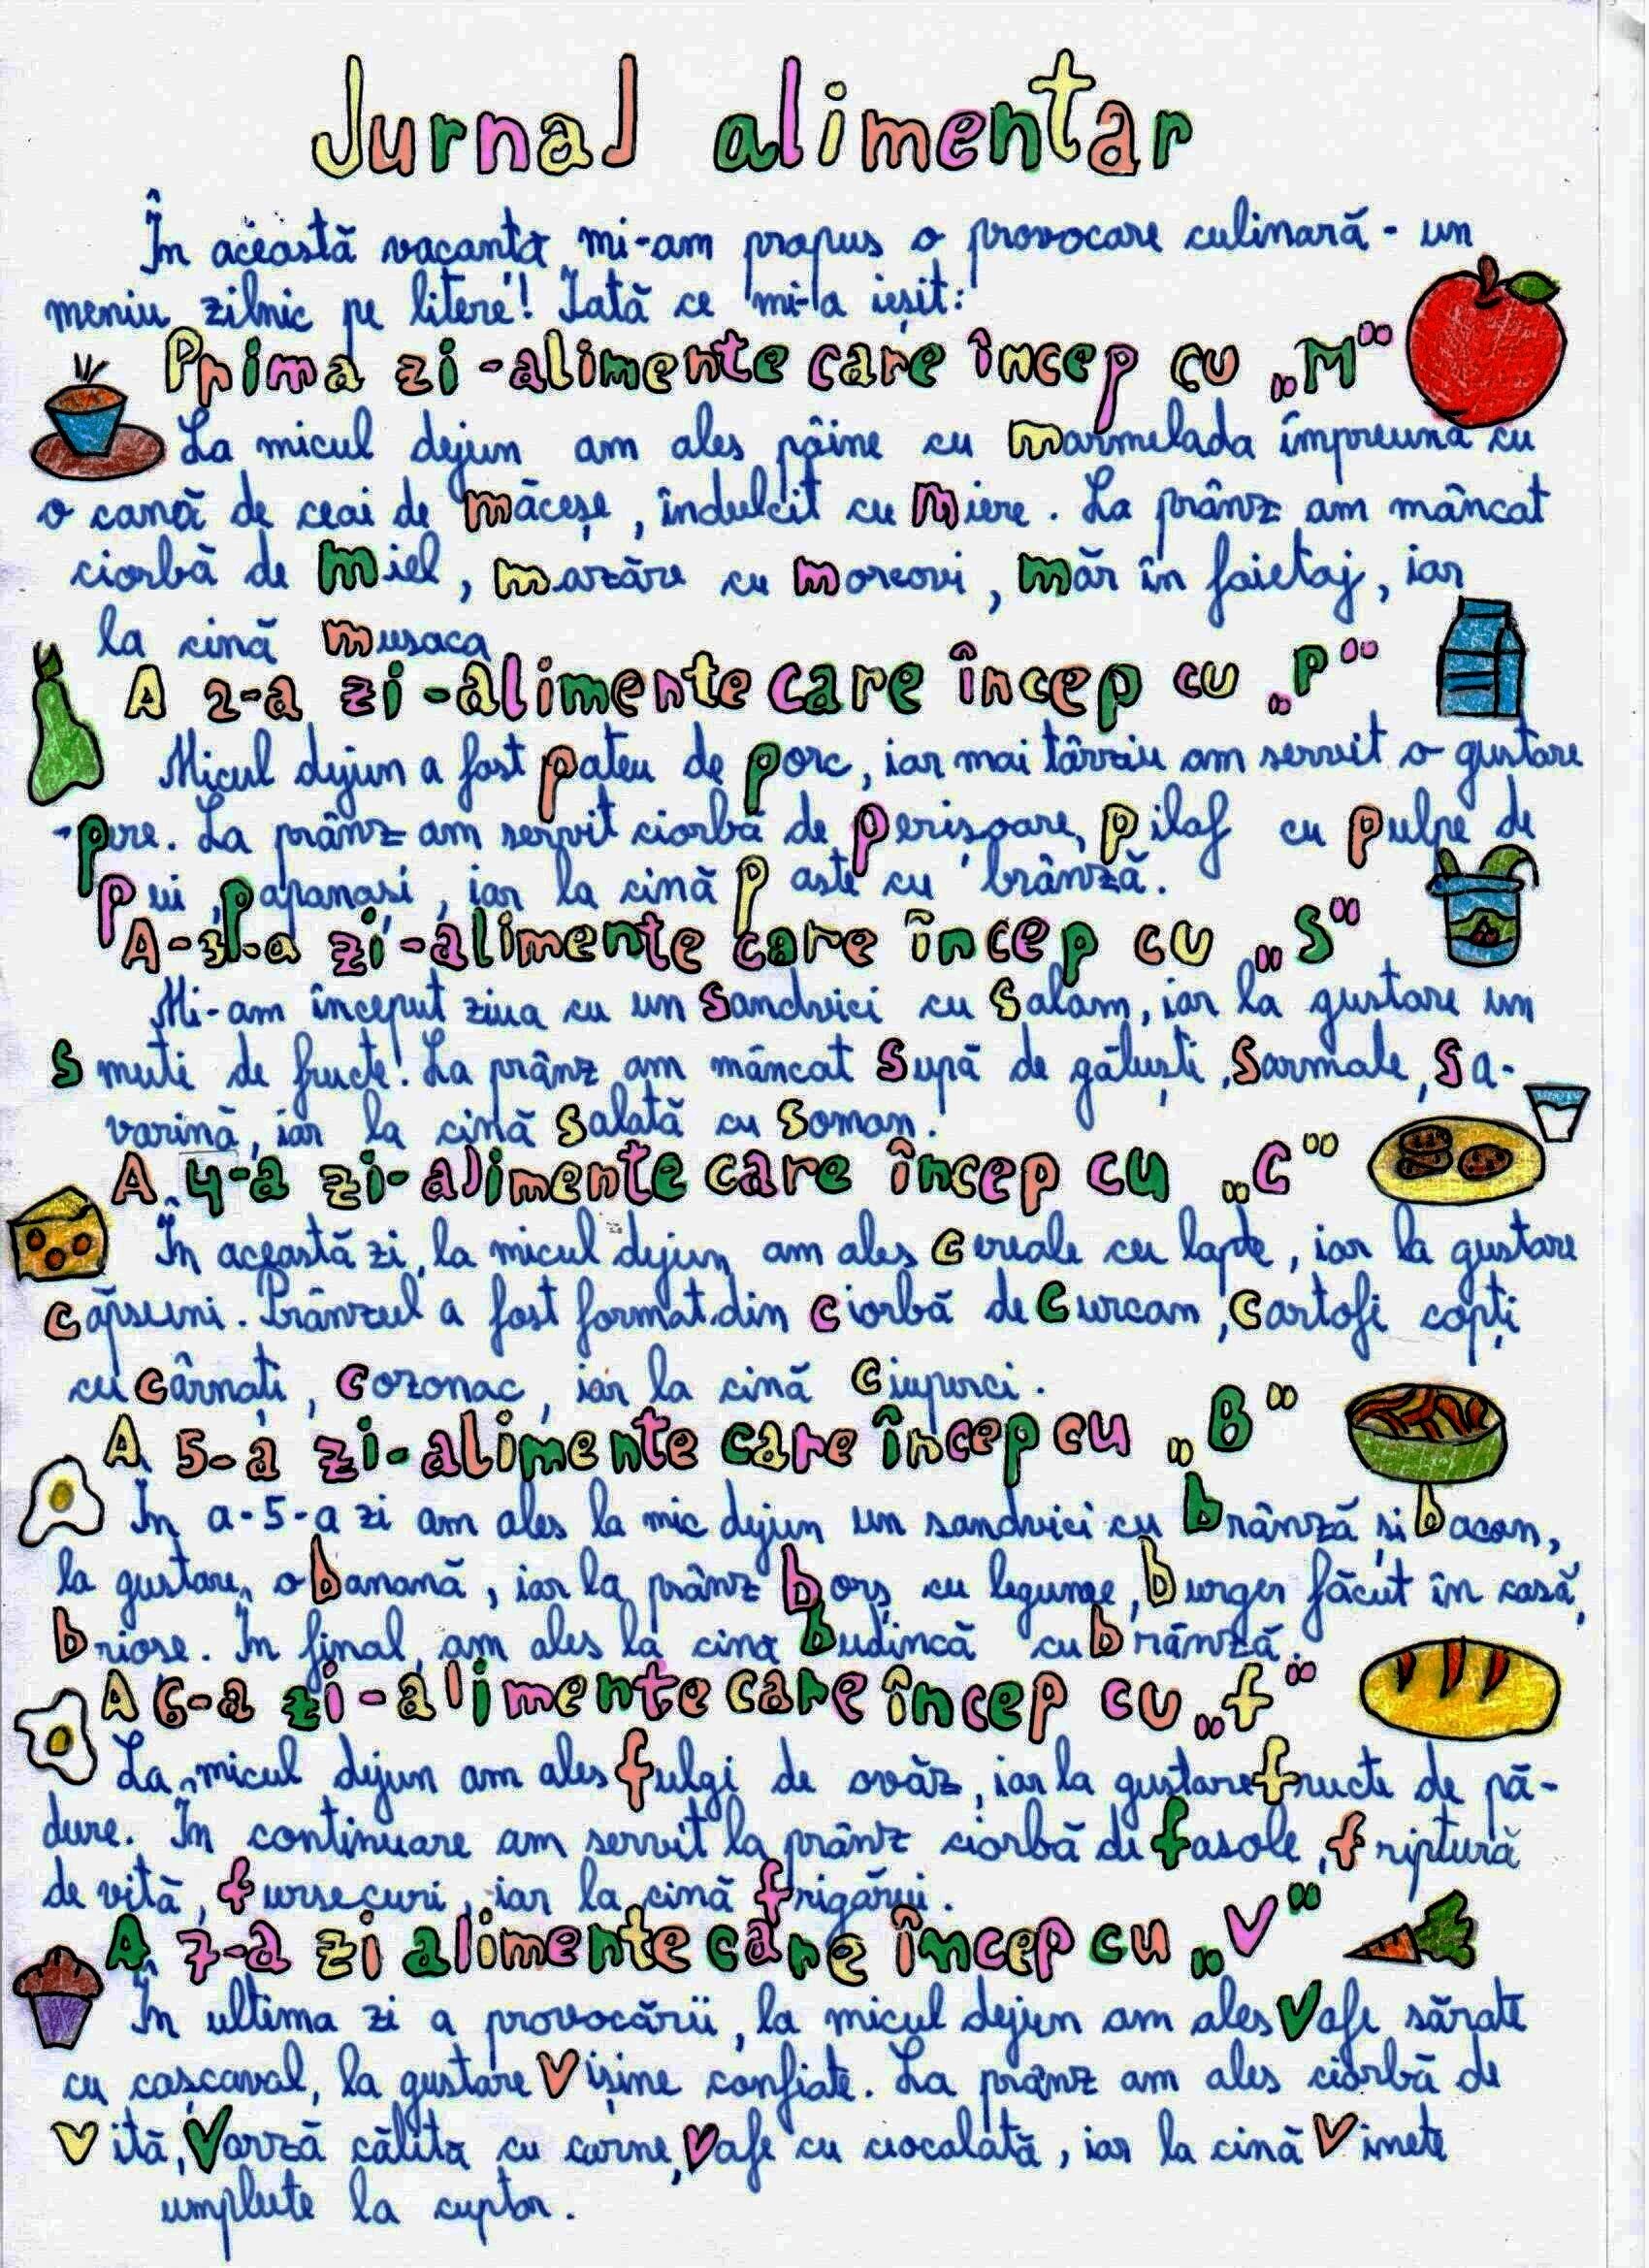 Jurnal alimentar
În această vacanță mi-am propus o provocare culinară - un
meniu zilnic pe litere! Iată ce mi-a ieșit:
Prima zi - alimente care încep cu „M"
La micul dejun am ales pâine cu marmelada împreună cu
o cană de ceai de măceșe, îndulcit cu Miere. La prânz am mâncat
ciorbă de miel, mazăre cu morcovi, măr în foietaj, iar
la cină musaca
A 2-a zi - alimente care încep cu „P"
Micul dejun a fost pateu de porc, iar mai târziu am servit o gustare
- pere. La prânz am servit ciorbă de perișoare, pilaf cu pulpe de
pui, papanași, iar la cină paste cu brânză.
A-3-a zi - alimente care încep cu „S"
Mi-am început ziua cu un Sandvici cu Salam, iar la gustare un
smuti de fructe! La prânz am mâncat Supă de găluști, Sarmale, Sa-
varină, iar la cină Salată cu Somon.
A 4-a zi - alimente care încep cu „C"
În această zi, la micul dejun am ales Cereale cu lapte, iar la gustare
căpșuni. Prânzul a fost format din ciorbă de Curcan, Cartofi copți
cu cârnați, Cozonac, iar la cină Ciuperci.
A 5-a zi - alimente care încep cu „B"
În a-5-a zi am ales la mic dejun un sandvici cu brânză și bacon,
la gustare, o banană, iar la prânz borș cu legume, burger făcut în casă,
briose. În final, am ales la cina budincă cu brânză.
A 6-a zi - alimente care încep cu „f"
La micul dejun am ales fulgi de ovăz, iar la gustare fructe de pă-
dure. În continuare am servit la prânz ciorbă de fasole, friptură
de vită, fursecuri, iar la cină frigărui.
A 7-a zi alimente care încep cu „V"
În ultima zi a provocării, la micul dejun am ales Vafe sărate
cu cașcaval, la gustare Vișine confiate. La prânz am ales ciorbă de
vită, Varză călită cu carne, Vafe cu ciocolată, iar la cină Vinete
umplute la cuptor.